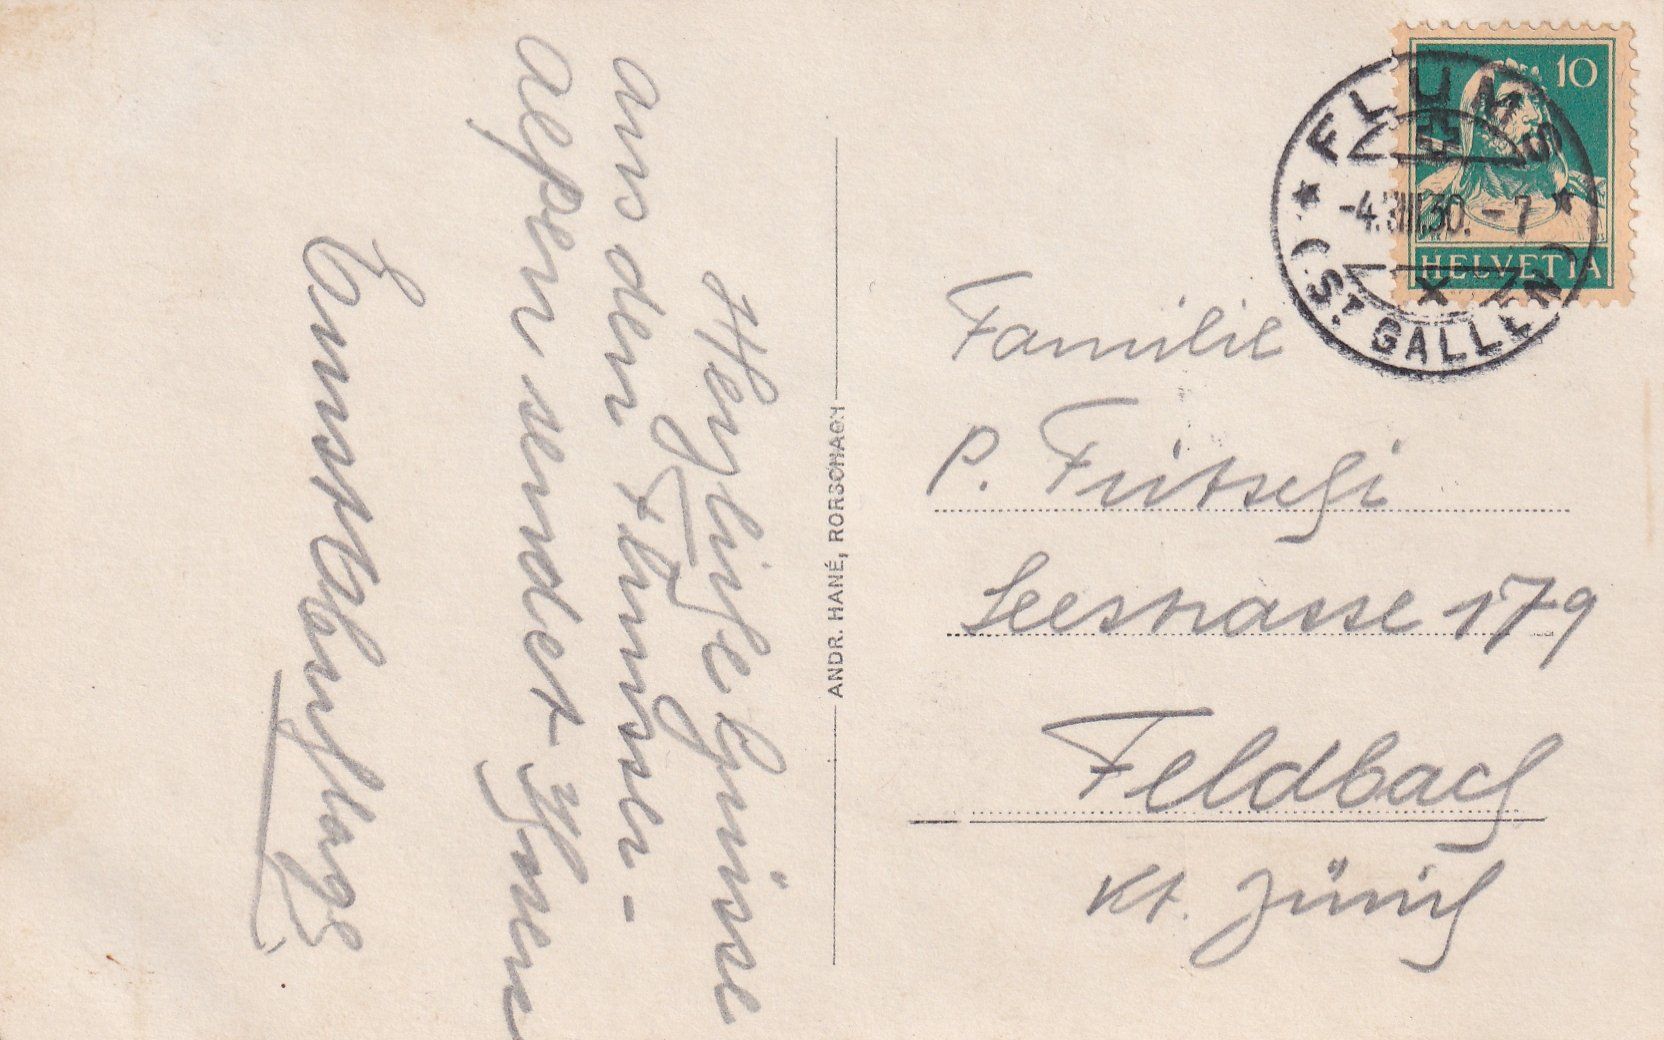 Herzliche Grüsse
aus den Flumser-
alpen sendet Ihnen
Ernst
ANDR. HANÉ, RORSCHACH
10
HELVETIA
FLUMS
-4.VIII.30.-7
(ST. GALLEN)
Familie
P. Fritschi
Seestrasse 179
Feldbach
Kt. Zürich